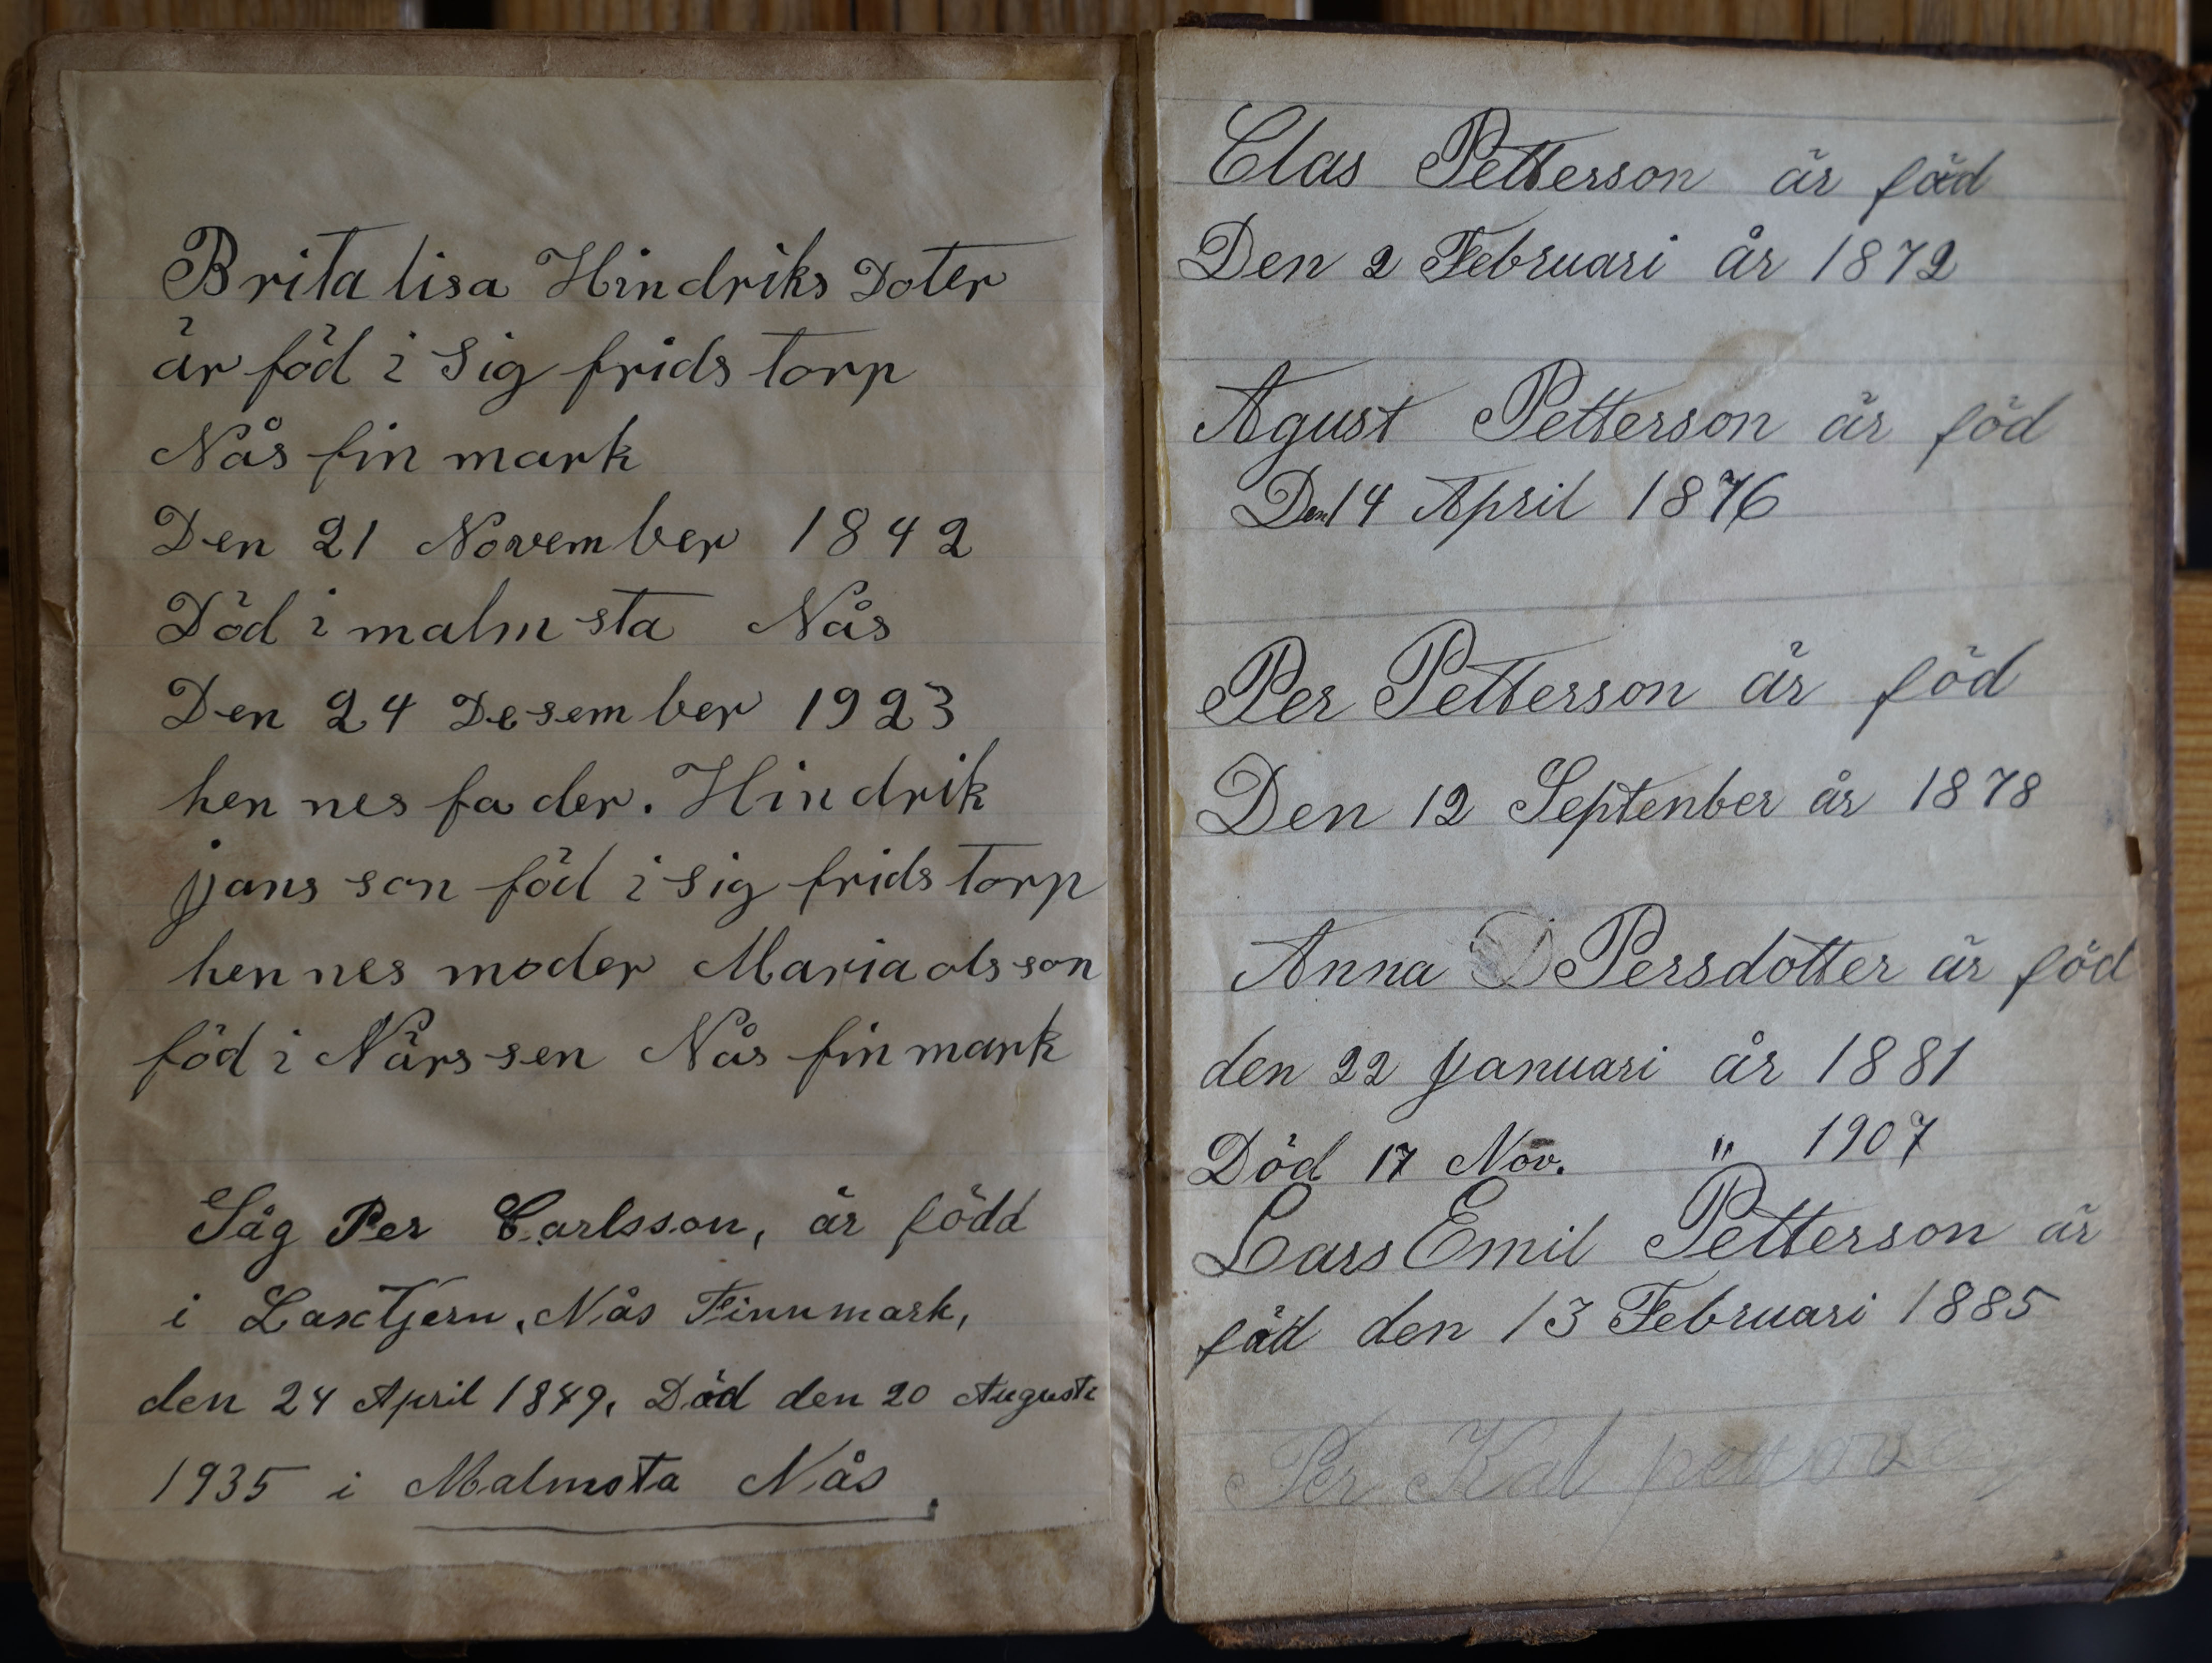 Brita lisa Hindriks Doter
är föd i Sig frids torp
Nås fin mark
Den 21 November 1842
Död i malm sta Nås
Den 24 Desember 1923
hen nes fa der. Hindrik
jans son föd i Sig frids torp
hen nes moder Maria ols son
föd i Närs sen Nås fin mark
Såg Per Carlsson, är född
i Laxtjern, Nås Finnmark,
den 24 April 1849, Död den 20 Augusti
1935 i Malmsta Nås
Clas Petterson är föd
Den 2 Februari år 1872
Agust Petterson är föd
Den 14 April 1876
Per Petterson är föd
Den 12 Septenber år 1878
Anna Persdotter är föd
den 22 Januari år 1881
Död 17 Nov. " 1907
Lars Emil Petterson är
föd den 13 Februari 1885
Per Kal